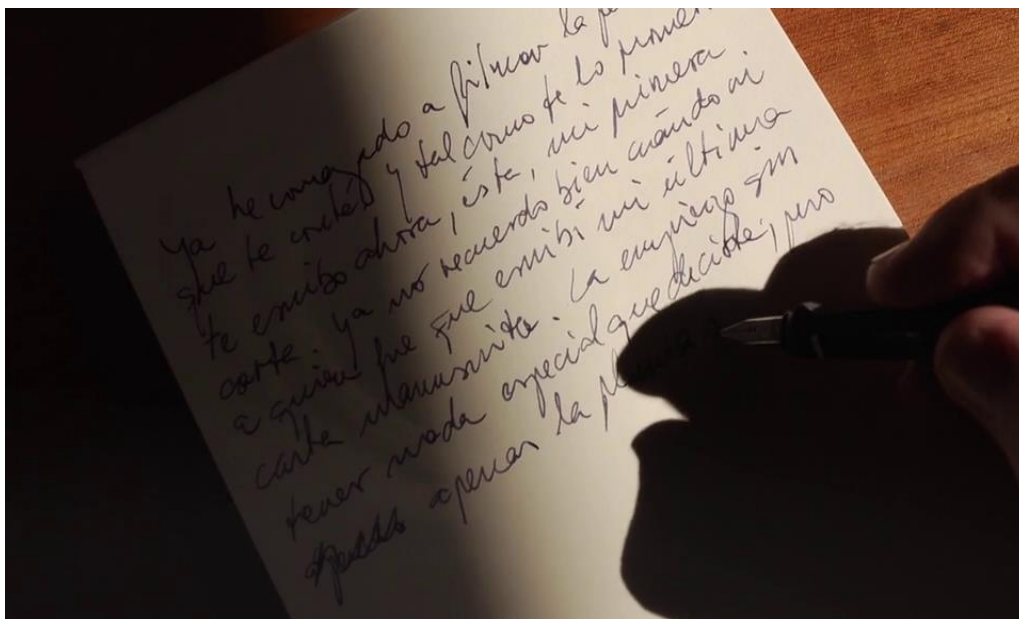 Ya he comenzado a filmar la pe
que te conté, y tal como te lo promet
te escribo ahora, ésta, mi primera
carta. Ya no recuerdo bien cuándo ni
a quién fue que escribí mi última
carta manuscrita. La empiezo sin
tener nada especial que decirte, pero
apenas la pluma